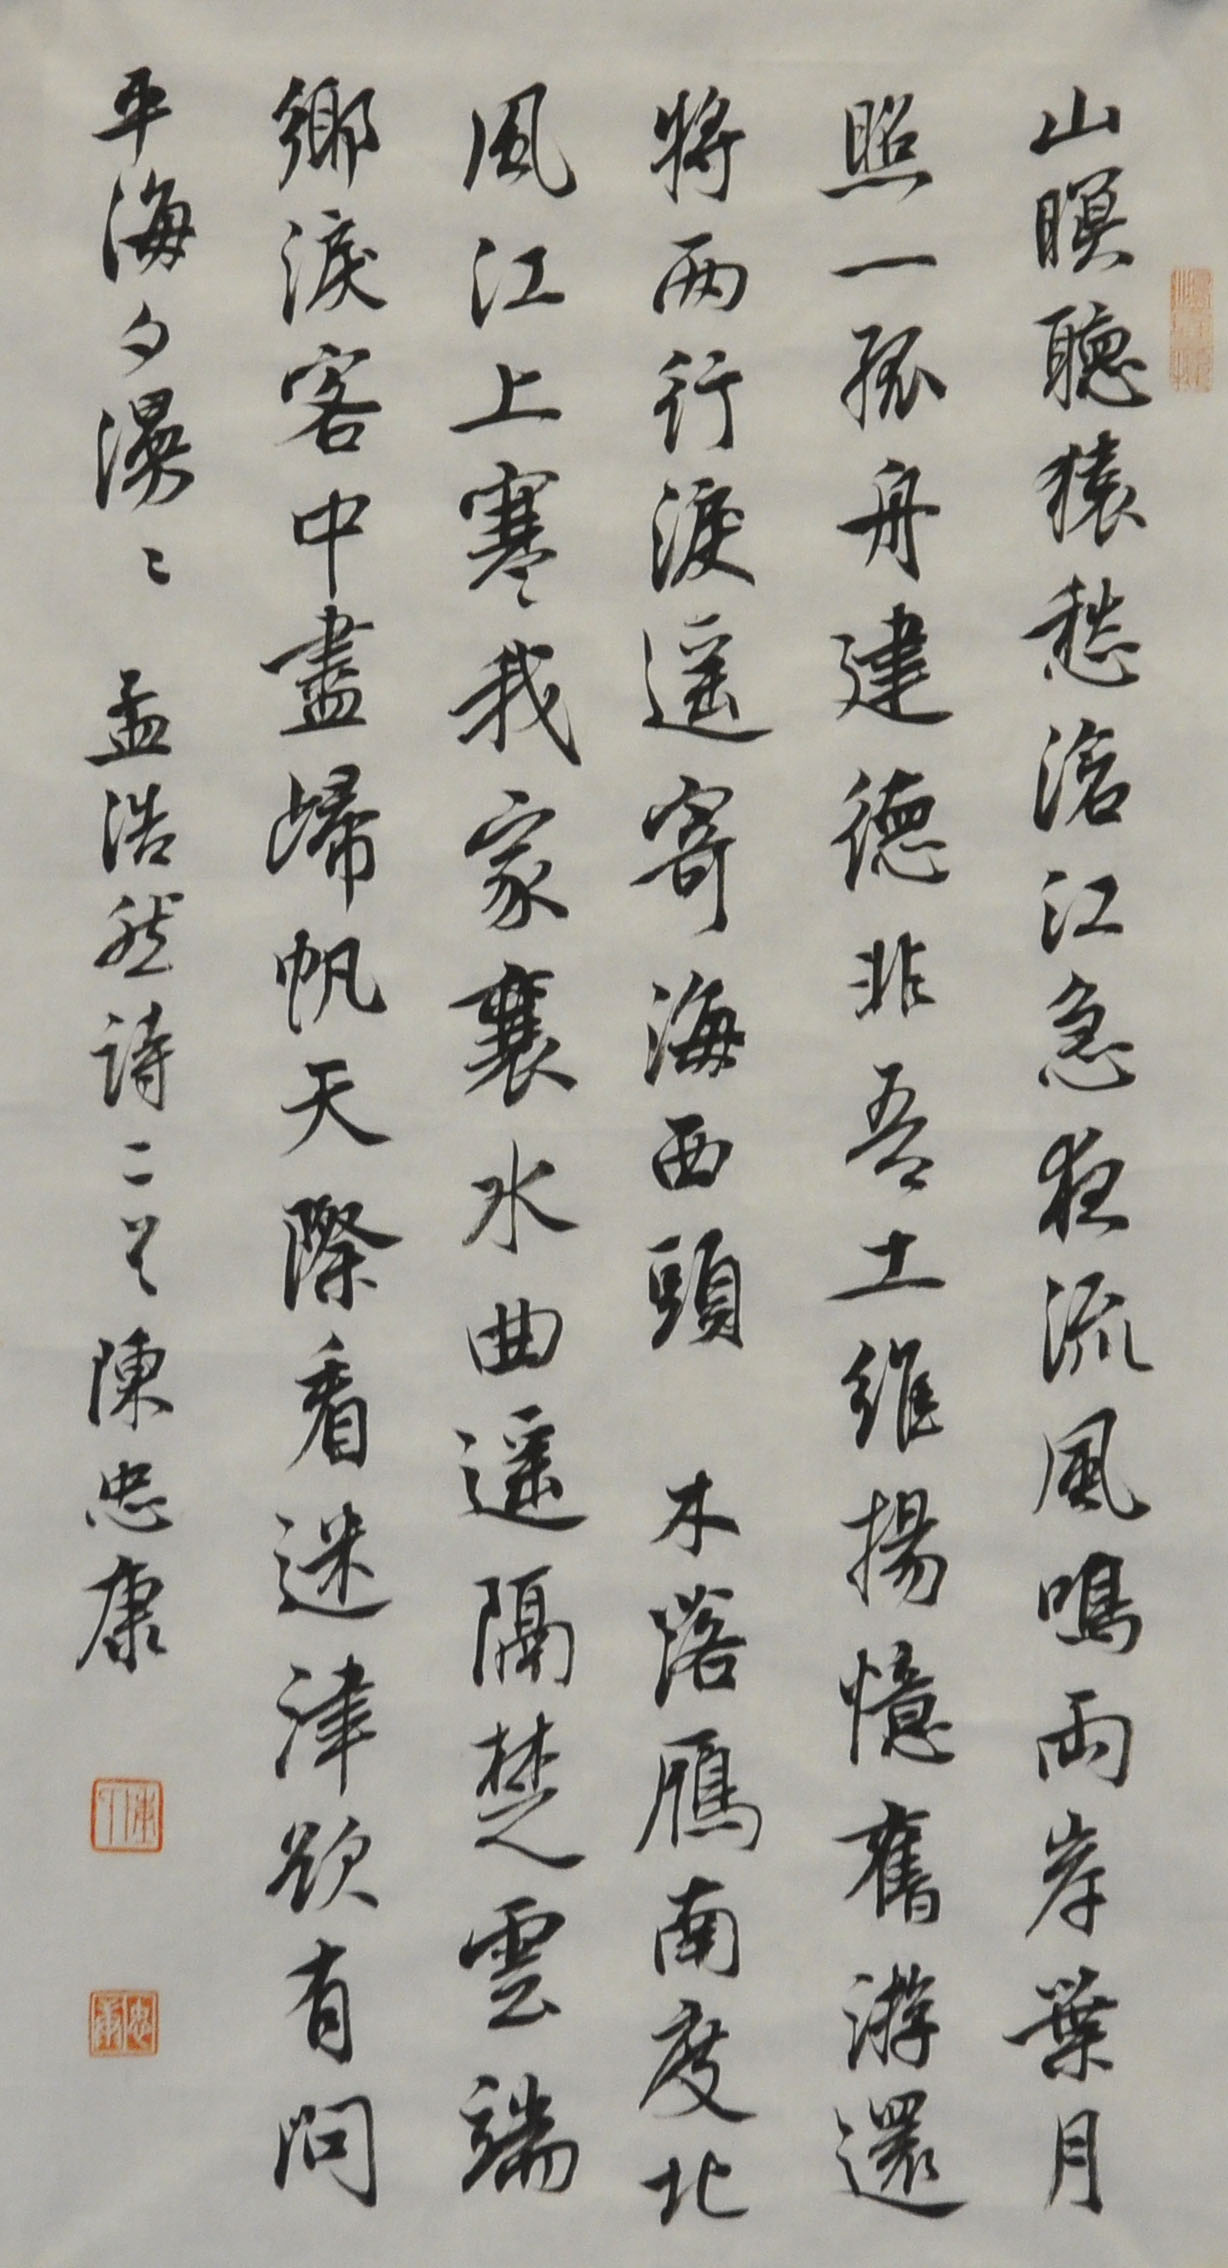 山暝聽猿愁滄江急夜流風鳴兩岸葉月
照一孤舟建德非吾土維揚憶舊游還
將兩行淚遥寄海西頭 木落雁南度北
風江上寒我家襄水曲遥隔楚雲端
鄉淚客中盡歸帆天際看迷津欲有問
平海夕漫〻 孟浩然詩二首 陳忠康
忠康